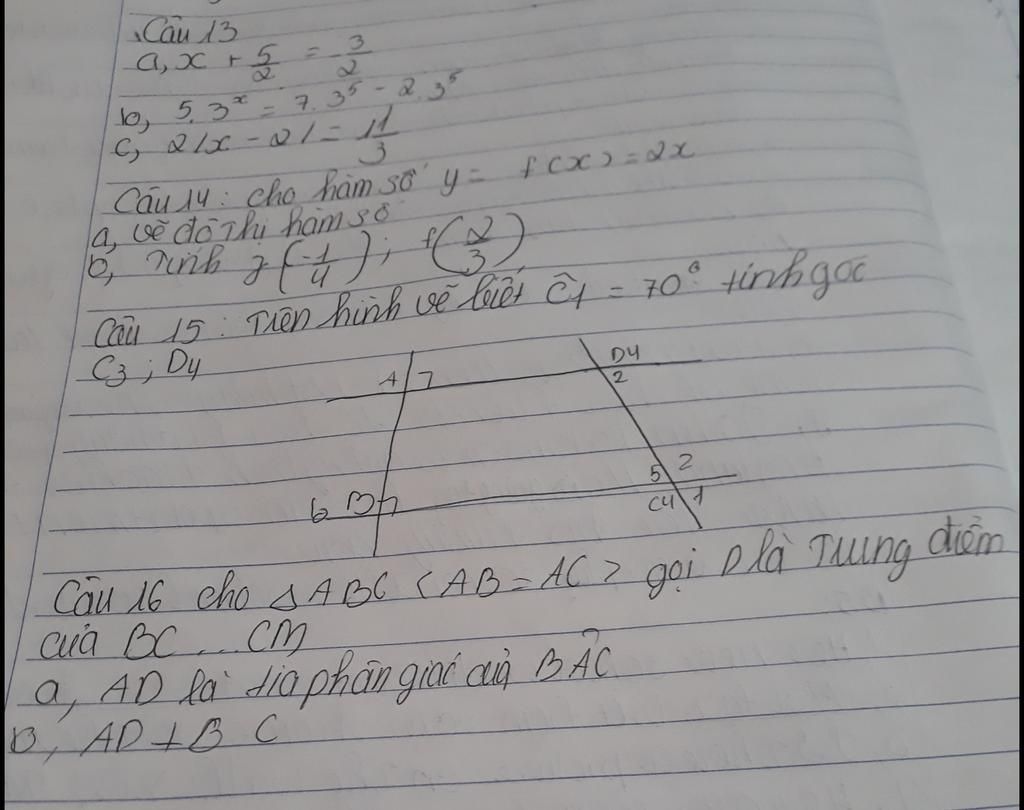 Câu 13
a, x + 5/2 = 3/2
b, 5.3^x = 7.3^5 - 2.3^5
c, 2|x - 2| = 11/3
Câu 14: cho hàm số y = f(x) = 2x
a, vẽ đồ thị hàm số
b, Tính f(-1/4); f(2/3)
Câu 15: Trên hình vẽ biết Ĉ1 = 70° tính góc
C3; D4
A 7 D4
2
5 2
b B C4 1
Câu 16 cho △ABC <AB = AC> gọi D là Trung điểm
của BC ... CM
a, AD là tia phân giác của BÂC
b, AD ⊥ B C